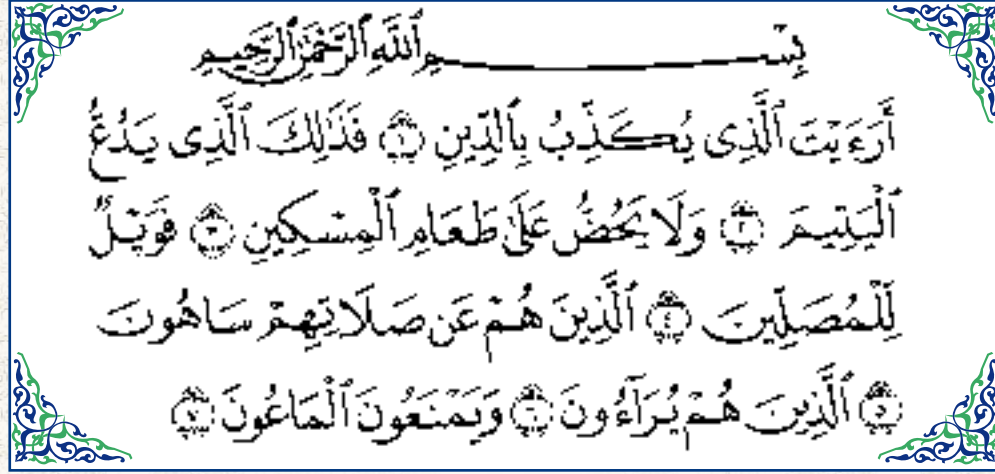 بِسْمِ ٱللَّهِ ٱلرَّحْمَٰنِ ٱلرَّحِيمِ
أَرَءَيْتَ ٱلَّذِى يُكَذِّبُ بِٱلدِّينِ ١ فَذَٰلِكَ ٱلَّذِى يَدُعُّ
ٱلْيَتِيمَ ٢ وَلَا يَحُضُّ عَلَىٰ طَعَامِ ٱلْمِسْكِينِ ٣ فَوَيْلٌ
لِّلْمُصَلِّينَ ٤ ٱلَّذِينَ هُمْ عَن صَلَاتِهِمْ سَاهُونَ
٥ ٱلَّذِينَ هُمْ يُرَآءُونَ ٦ وَيَمْنَعُونَ ٱلْمَاعُونَ ٧